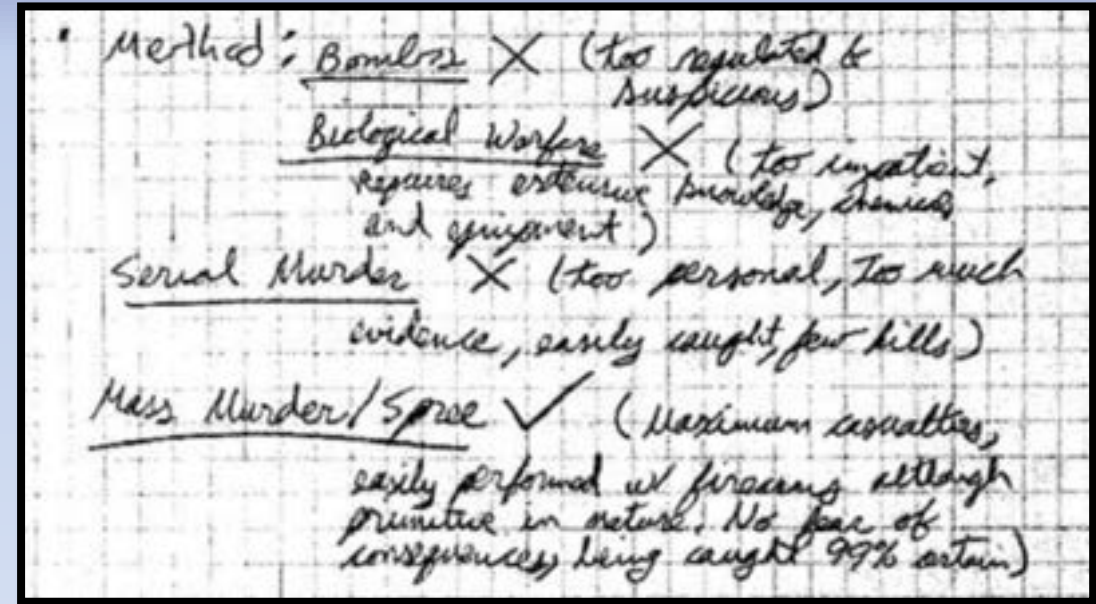 • Method: Bombs X (too regulated &
suspicious)
Biological Warfare X (too impatient,
requires extensive knowledge, chemicals
and equipment)
Serial Murder X (too personal, too much
evidence, easily caught, few kills)
Mass Murder/Spree ✓ (Maximum casualties,
easily performed w/ firearms although
primitive in nature. No fear of
consequences, being caught 99% certain)